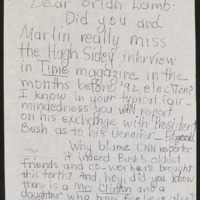 Dear Brian Lamb:
Did you and
Marlin really miss
the Hugh Sidey interview
in Time magazine in the
months before '92 election?
I know in your typical fair-
mindedness you will report
on his exchange with President
Bush as to his Jennifer Fitzgerald.
Why blame CNN reporter
if indeed Bush's oldest
friends and co-workers brought
this forth? And, hey, did you know
there is a Mrs. Clinton and a
daughter who have feelings also?